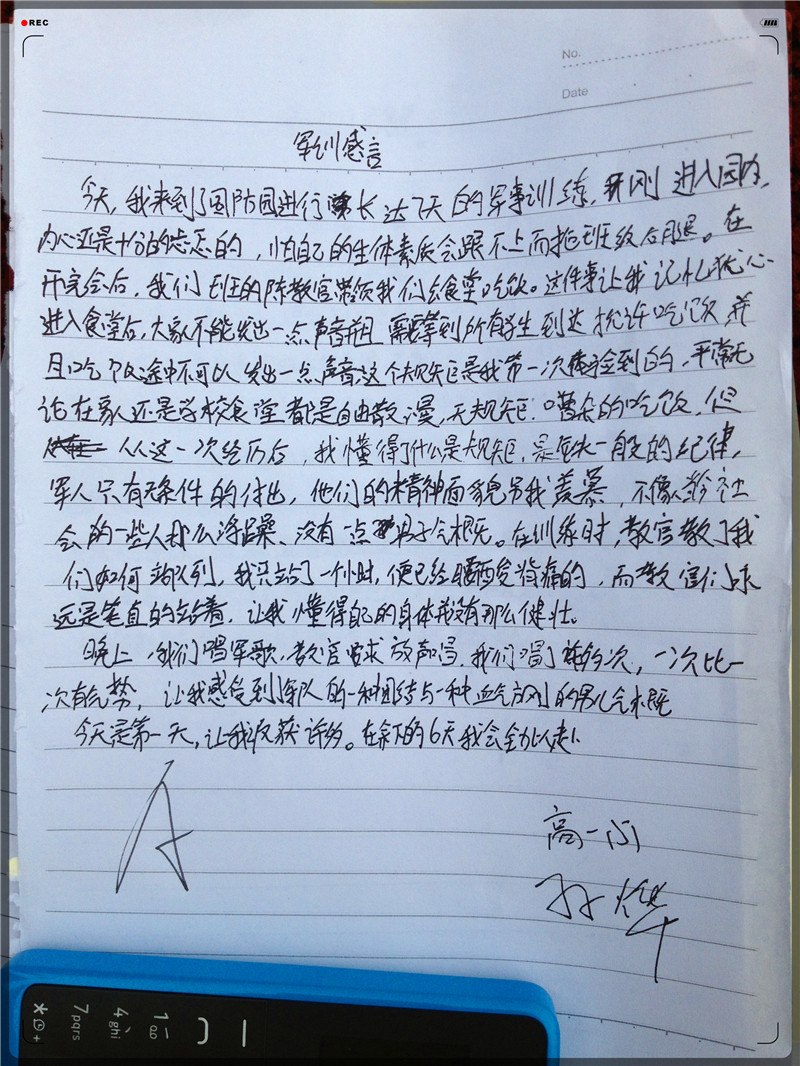 REC
No.
Date
军训感言
今天,我来到了国防园进行长达7天的军事训练,刚进入园内,
内心还是十分的忐忑的,怕自己的身体素质会跟不上而拖班级后腿。在
开完会后,我们班的陈教官带领我们去食堂吃饭。这件事让我记忆犹心
进入食堂后,大家不能发出一点声音并且需要等到所有学生到达允许吃饭,并
且吃饭途中不可以发出一点声音这个规矩是我第一次体验到的,平常无
论在家还是学校食堂都是自由散漫,无规矩,嘈杂的吃饭,但
从这一次经历后,我懂得了什么是规矩,是铁一般的纪律,
军人只有无条件的付出,他们的精神面貌另我羡慕,不像社
会的一些人那么浮躁、没有一点男子气概。在训练时,教官教了我
们如何站队列,我只站了一小时,便已经腰酸背痛的,而教官们永
远是笔直的站着,让我懂得自己的身体没有那么健壮。
晚上,我们唱军歌,教官要求放声唱,我们唱了许多次,一次比一
次有气势,让我感受到军队的一种团结与一种血气方刚的男儿气概
今天是第一天,让我收获许多。在余下的6天我会全力以赴
A
高一
孙烨
1
4 ghi
7 pqrs
*